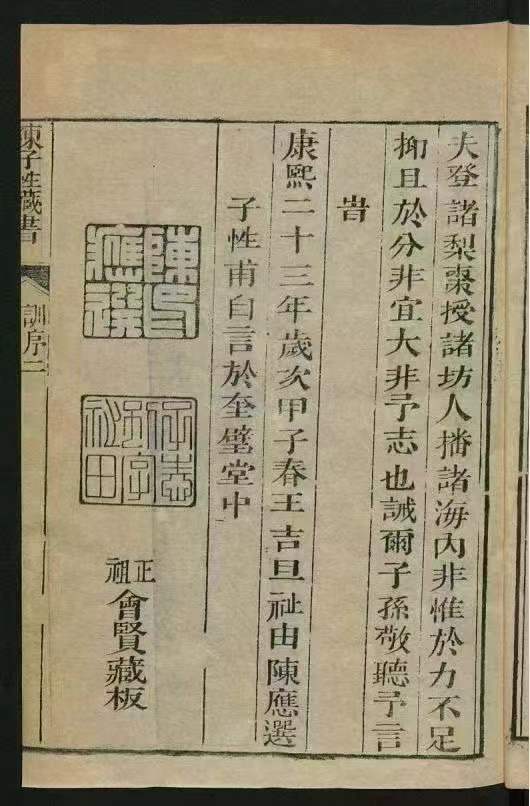 夫登諸梨棗授諸坊人播諸海内非惟於力不足
抑且於分非宜大非予志也誡爾子孫敬聽予言
旹
康熙二十三年歲次甲子春王吉旦祉由陳應選
子性甫自言於至璧堂中
陳印應選
正祖會賢藏板
陳子性藏書 訓序二